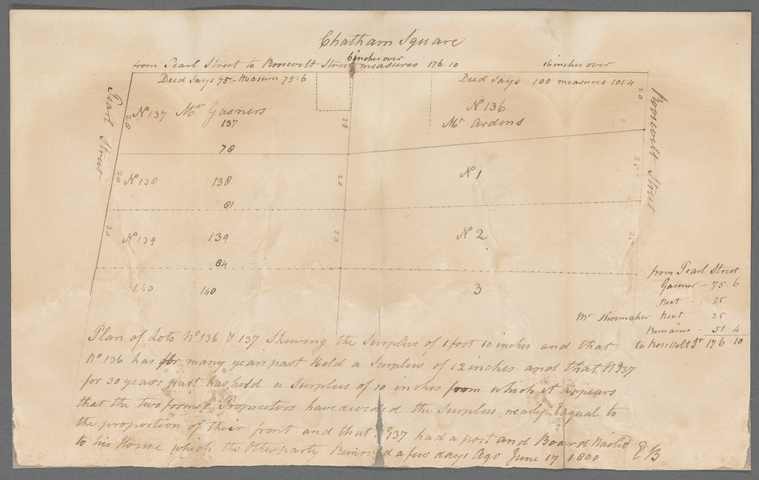 Chatham Square
6 inches over
from Pearl Street to Roosevelt Street measures 176.10
16 inches over
Deed Says 75 - Measur 75:6
Deed Says 100 measures 101:4
Pearl Street
Roosevelt Street
No 137 Mr Gasners
137
No 136
Mr Ardons
20
20
20
78
No 138
138
No 1
20
20
25
81
No 139
139
No 2
20
20
25
84
140
140
3
from Pearl Street
Gasner - 75:6
Next 25
Mr Shoemaker Next 25
Remains - 51:4
to Rosevolt St 176:10
Plan of Lots No 136 & 137 Shewing the Surplus of 1 foot 10 inches and that
No 136 has for many years past Held a Surplus of 12 inches and that No 137
for 30 years past has held a Surplus of 10 inches from which it appears
that the two former Proprietors have divided the Surplus nearly Equal to
the proportion of their front and that No 937 had a post and Board Nailed
to his House which the other party Removed a few days Ago June 17 1800 EB